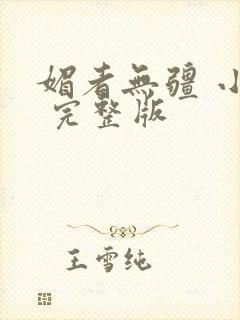 媚者無疆 小
完整版
王雪纯